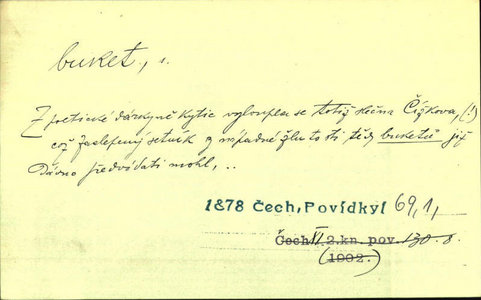 buket, s.
Z poetické dárkyně kytic vyloupla se totiž slečna Čížkova, (!)
což zaslepený setník z nápadné žlutosti těch buketů již
dávno předvídati mohl, ..
1878 Čech, Povídky I 69, 1,
Čech VI. 2. kn. pov. 130. s.
(1902.)